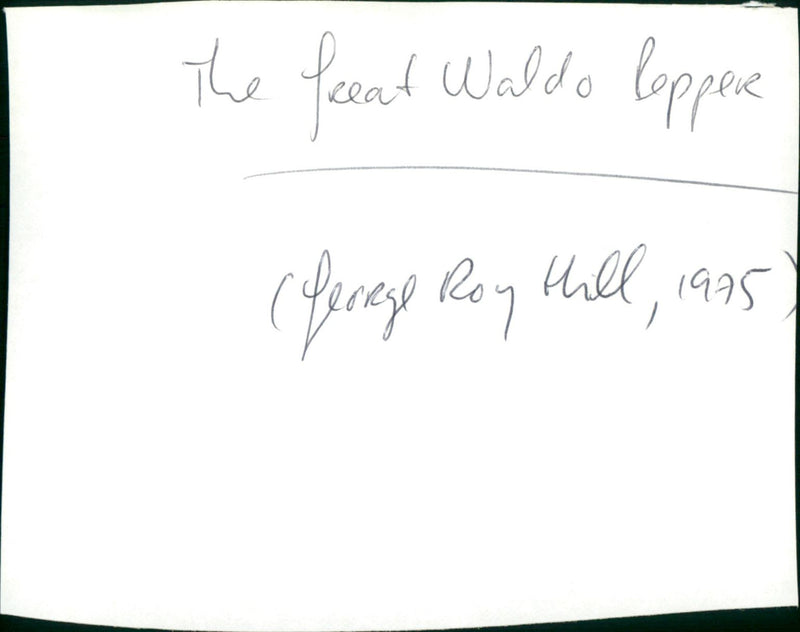 The Great Waldo Pepper
(George Roy Hill, 1975)